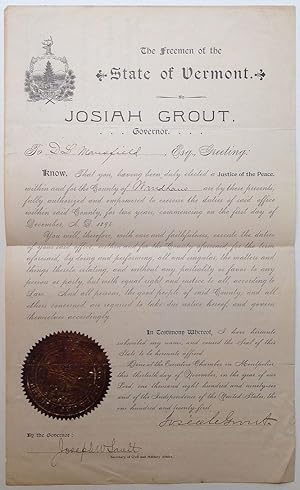 The Freemen of the
State of Vermont.
By
JOSIAH GROUT,
. . . Governor. . . .
To D. L. Mansfield Esq., Greeting:
KNOW, That you, having been duly elected a Justice of the Peace,
within and for the County of Windham are by these presents,
fully authorized and empowered to execute the duties of said office
within said County, for two years, commencing on the first day of
December, A. D. 189
You will, therefore, with care and faithfulness, execute the duties
of your said office in and for the County aforesaid for the term
aforesaid, by doing and performing, all and singular, the matters and
things thereto relating, and without any partiality or favor to any
person or party, but with equal right and justice to all, according to
Law. And all persons, the good people of said County, and all
others concerned are required to take due notice hereof, and govern
themselves accordingly.
In Testimony Whereof, I have hereunto
subscribed my name, and caused the Seal of this
State to be hereunto affixed.
Done at the Executive Chamber in Montpelier
this thirtieth day of December, in the year of our
Lord, one thousand eight hundred and ninety-six
and of the Independence of the United States, the
one hundred and twenty-first.
Josiah Grout.
By the Governor:
Joseph W. Sault
Secretary of Civil and Military Affairs.